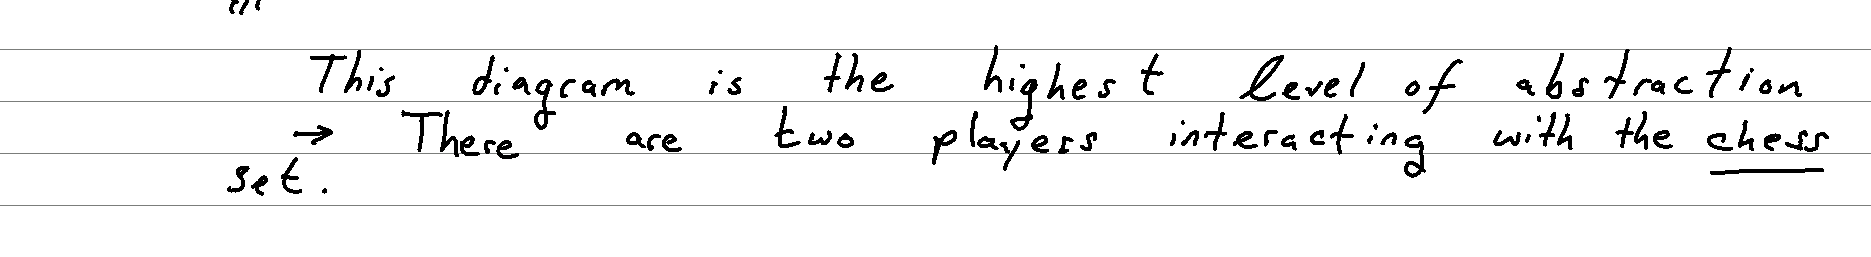 This diagram is the highest level of abstraction
→ There are two players interacting with the chess
set.